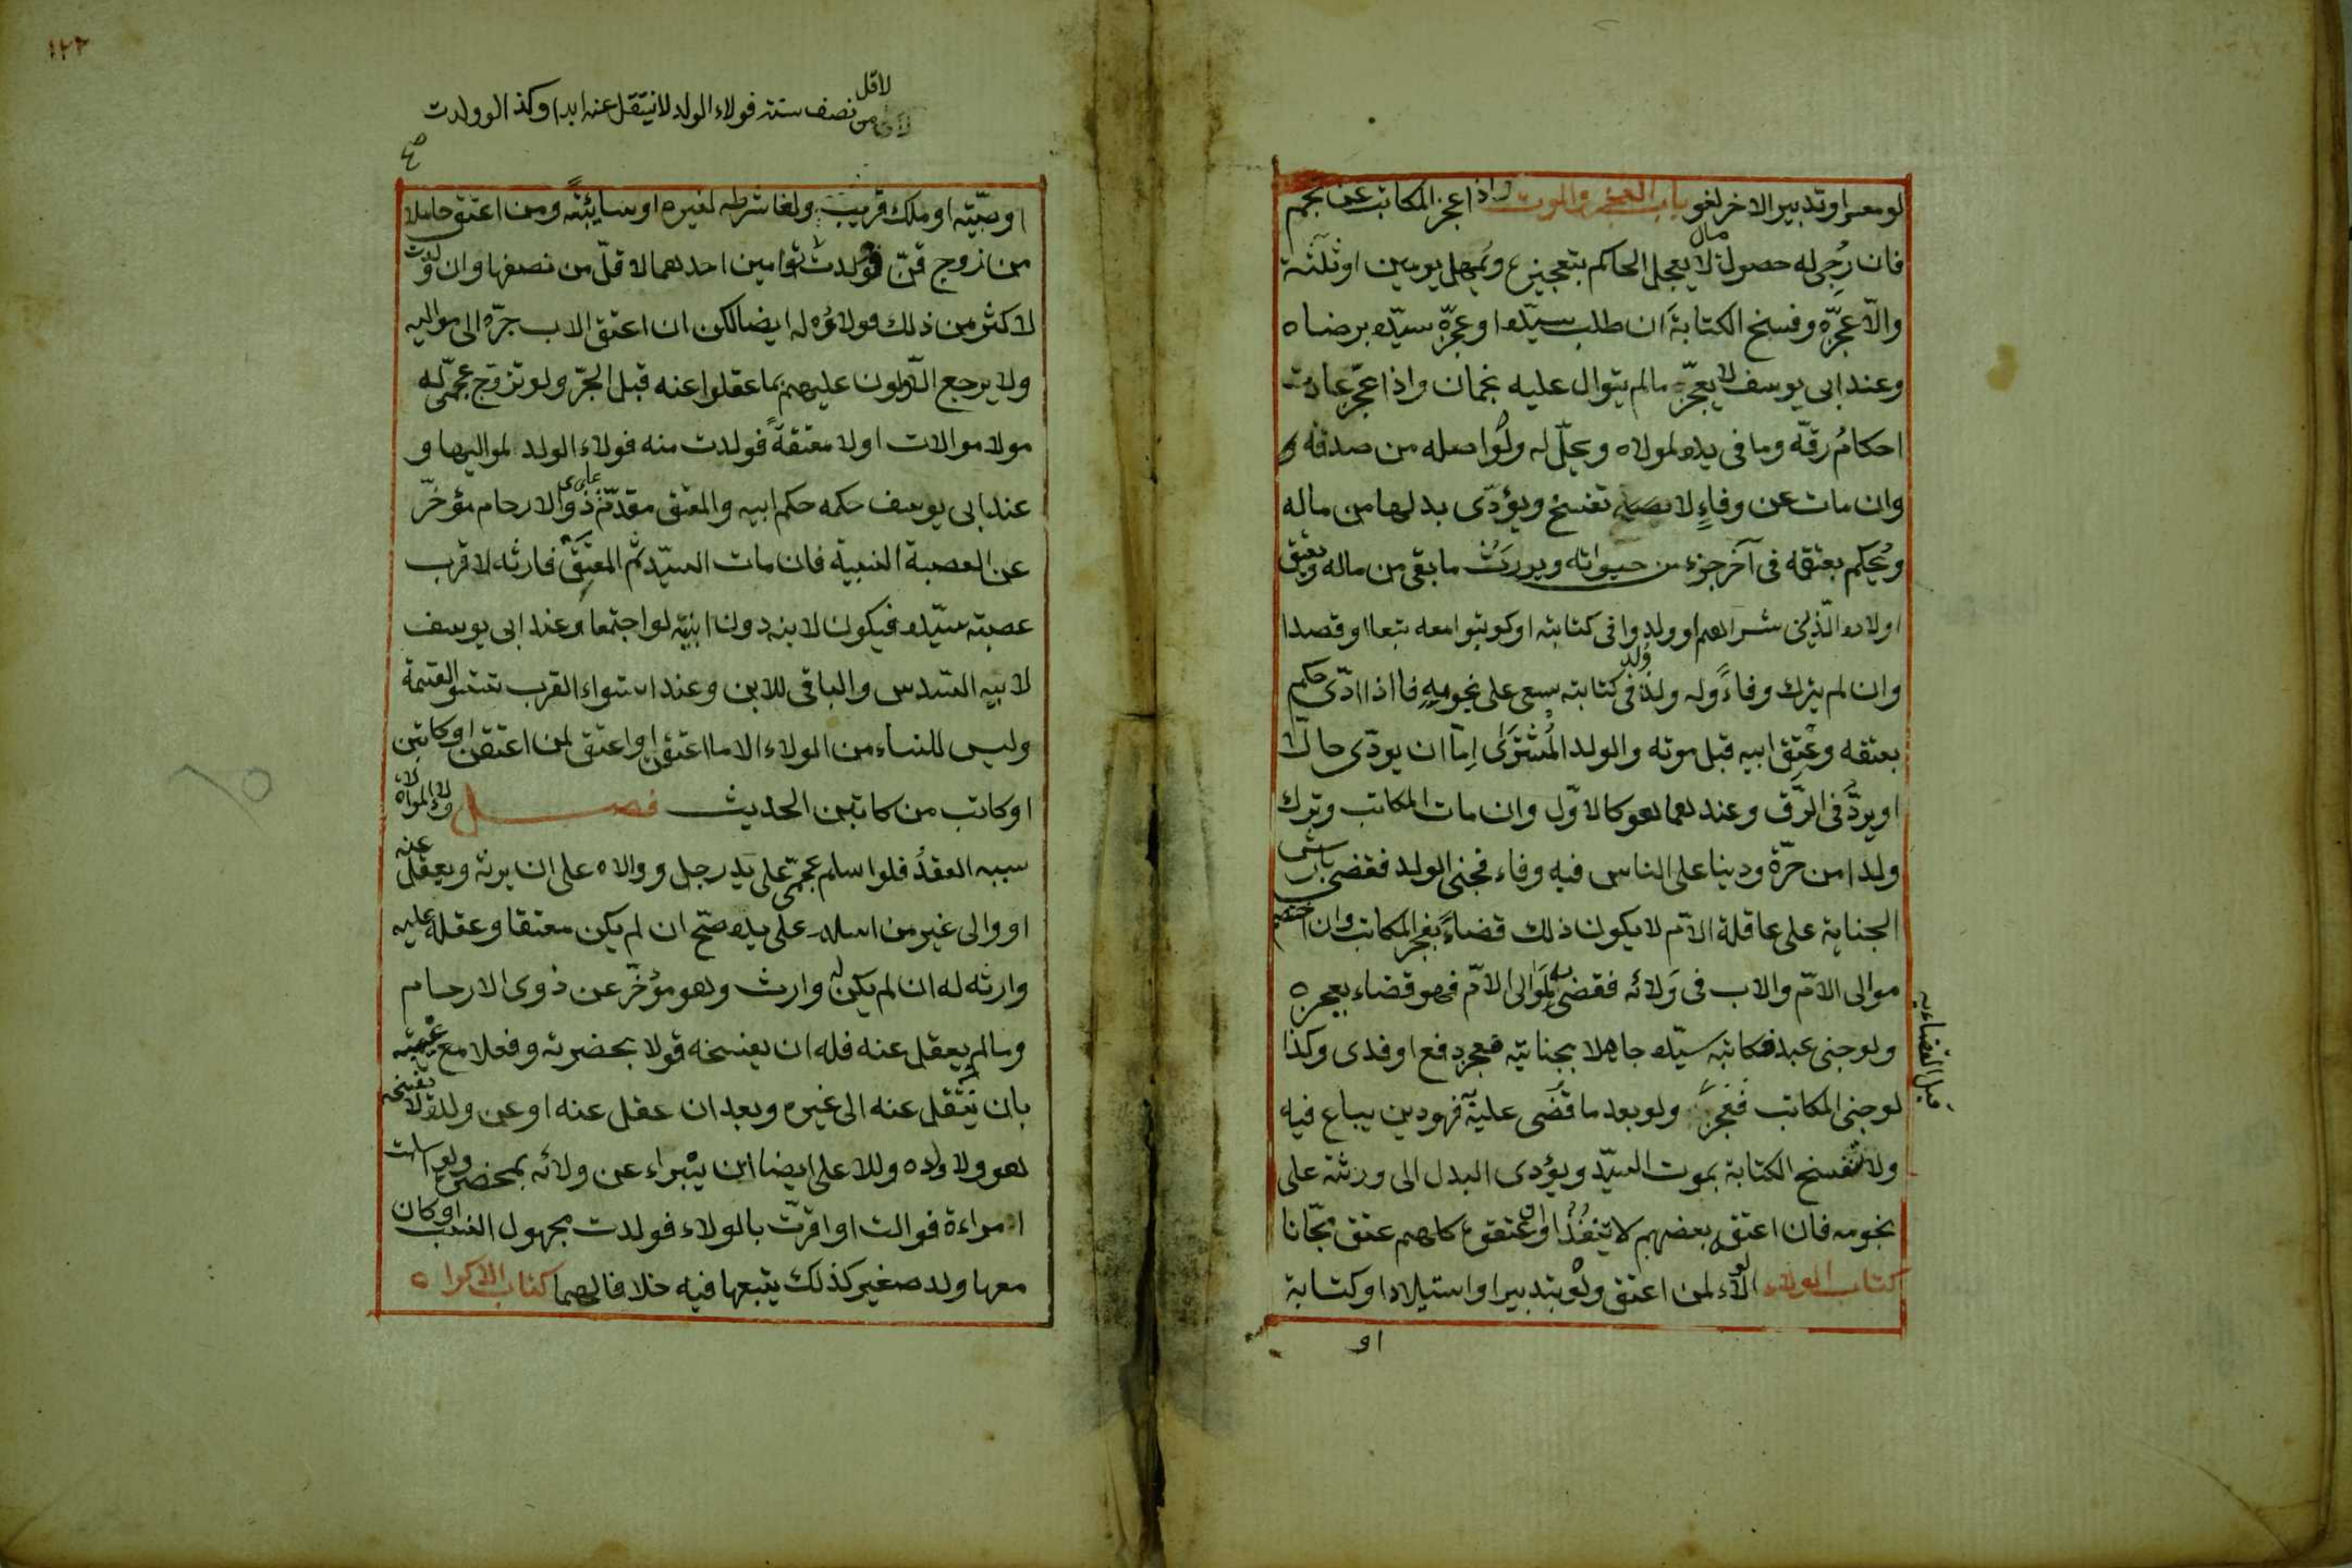 لو معسرا وتدبير الاخر لغو باب العجز والموت واذا عجز المكاتب عن نجم
فان رُجى له حصول مال لا يعجل الحاكم بتعجيزه ويمهل يومين او ثلثة
والّا عجّزه وفسخ الكتابة ان طلب سيّده او عجزه سيّده برضاه
وعند ابى يوسف لا يعجّز مالم يتوال عليه نجمان واذا عجّز عادت
احكامُ رقّه وما فى يده لمولاه ويحلّ له ولو اصله من صدقة و
وان مات عن وفاءٍ لا تفسخ ويؤدّى بدلها من ماله
ويُحكم بعتقه فى آخر جزء من حيواته ويورث ما بقى من ماله ويعتق
اولاده الّذين شراهم او ولدوا فى كتابته او كوتبوا معه تبعا او قصدا
وان لم يترك وفاءً وله ولد وُلد فى كتابته سعى على نجومه فاذا ادّى حكم
بعتقه وعتق ابيه قبل موته والولد المُشترَى اِمّا ان يودّى حالّا
او يردّ فى الرّق وعندهما هو كالاوّل وان مات المكاتب وترك
ولدا من حرّة ودينا على الناس فيه وفاء فجنى الولد فقضى بارش
الجناية على عاقلة الامّ لا يكون ذلك قضاءً بعجز المكاتب وان اختصم
موالى الامّ والاب فى وَلائه فقضى به لموالى الامّ فهو قضاء بعجزه
ولو جنى عبد فكاتبه سيّده جاهلا بجنايته فعجز دفع او فدى وكذا
لو جنى المكاتب فعجز قبل القضاء به ولو بعد ما قُضى عليه فهو دين يباع فيه
ولا تنفسخ الكتابة بموت السيّد ويؤدى البدل الى ورثته على
نجومه فان اعتقه بعضهم لا ينفُذ وان اعتقوه كلهم عتق مجّانا
كتاب الولاء الولاء لمن اعتق ولو بتدبير او استيلاد او كتابة
او
١٢٢
لاقل من نصف سنة فولاء الولد لا ينتقل عنه ابدا وكذا لو ولدت
او وصيّة او ملك قريب ولغا شرطه لغيره او سايبةً ومن اعتق حاملا
من زوج قنّ فولدت توامين احدهما لاقلّ من نصفها وان ولدت
لاكثر من ذلك فولاؤه له ايضا لكن ان اعتق الاب جرّه الى مواليه
ولا يرجع الاّولون عليهم بما عقلوا عنه قبل الجرّ ولو تزوّج عجمىّ له
مولا موالات اولا معتقةً فولدت منه فولاء الولد لمواليها و
عند ابى يوسف حكمه حكم ابيه والمعتق مقدّم على ذوى الارحام مؤخّر
عن العصبة النسبية فان مات السيّد ثمّ المعتَق فارثه لاقرب
عصبة سيّده فيكون لابنه دون ابيه لو اجتمعا وعند ابى يوسف
لابيه السّدس والباقى للابن وعند استواء القرب تستو القسمة
وليس للنساء من الولاء الا ما اعتقن او اعتق من اعتقن او كاتبن
او كاتب من كاتبن الحديث فصل ولاء الموالاة
سببه العقدُ فلو اسلم عجمّى على يد رجل ووالاه على ان يرثه ويعقل عنه
او والى غير من اسلم على يده صحّ ان لم يكن معتقا وعقله عليه
وارثه له ان لم يكن له وارث وهو مؤخّر عن ذوى الارحام
وما لم يعقل عنه فله ان يفسخه قولا بحضرته وفعلا مع غيبته
بان ينتقل عنه الى غيره وبعد ان عقل عنه او عن ولده لا يفسخه
هو ولا ولاده وللاعلى ايضا ان يبراء عن ولائه بمحضره ولو اسلمت
امراءة فوالت او اقرّت بالولاء فولدت مجهول النسب او كان
معها ولد صغير كذلك يتبعها فيه خلافا لهما كتاب الاكراه